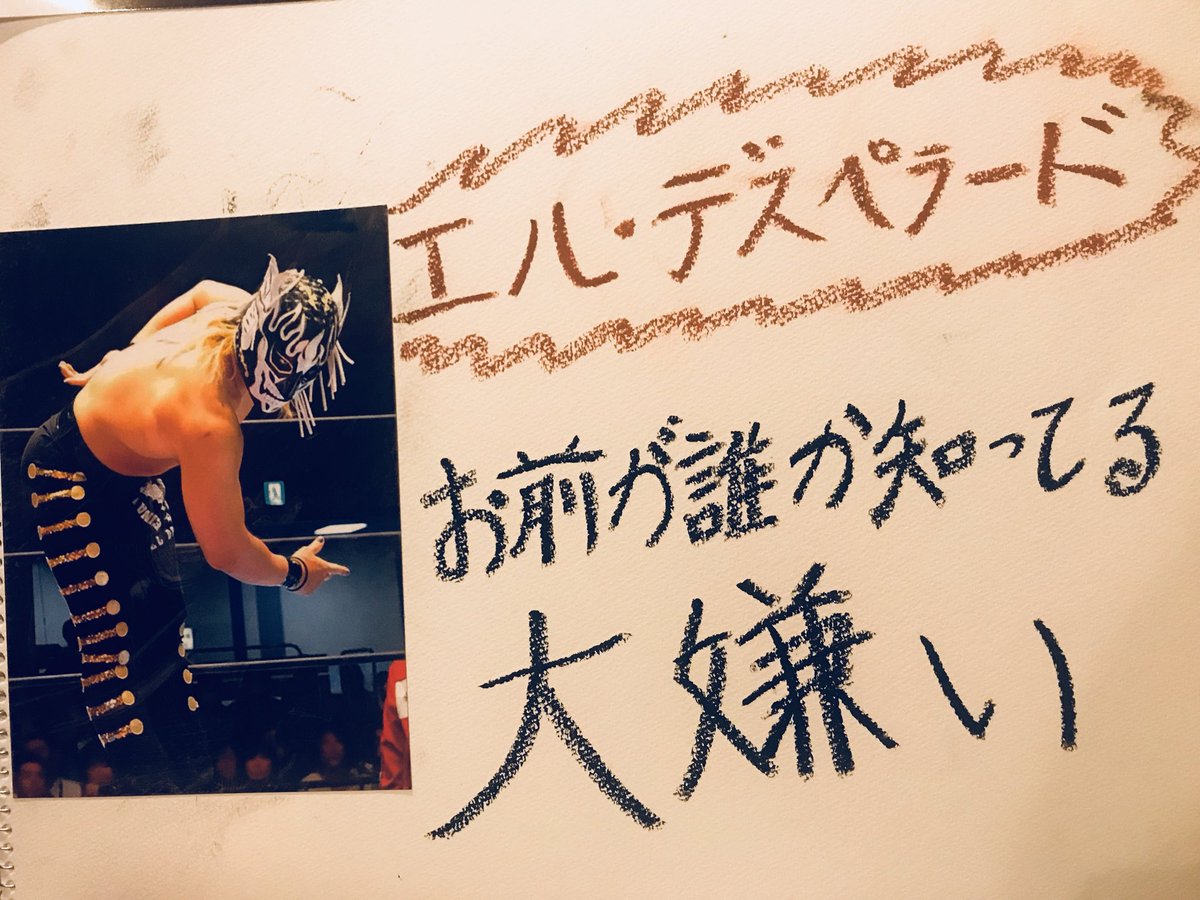 エル・デスペラード
お前が誰か知ってる
大嫌い